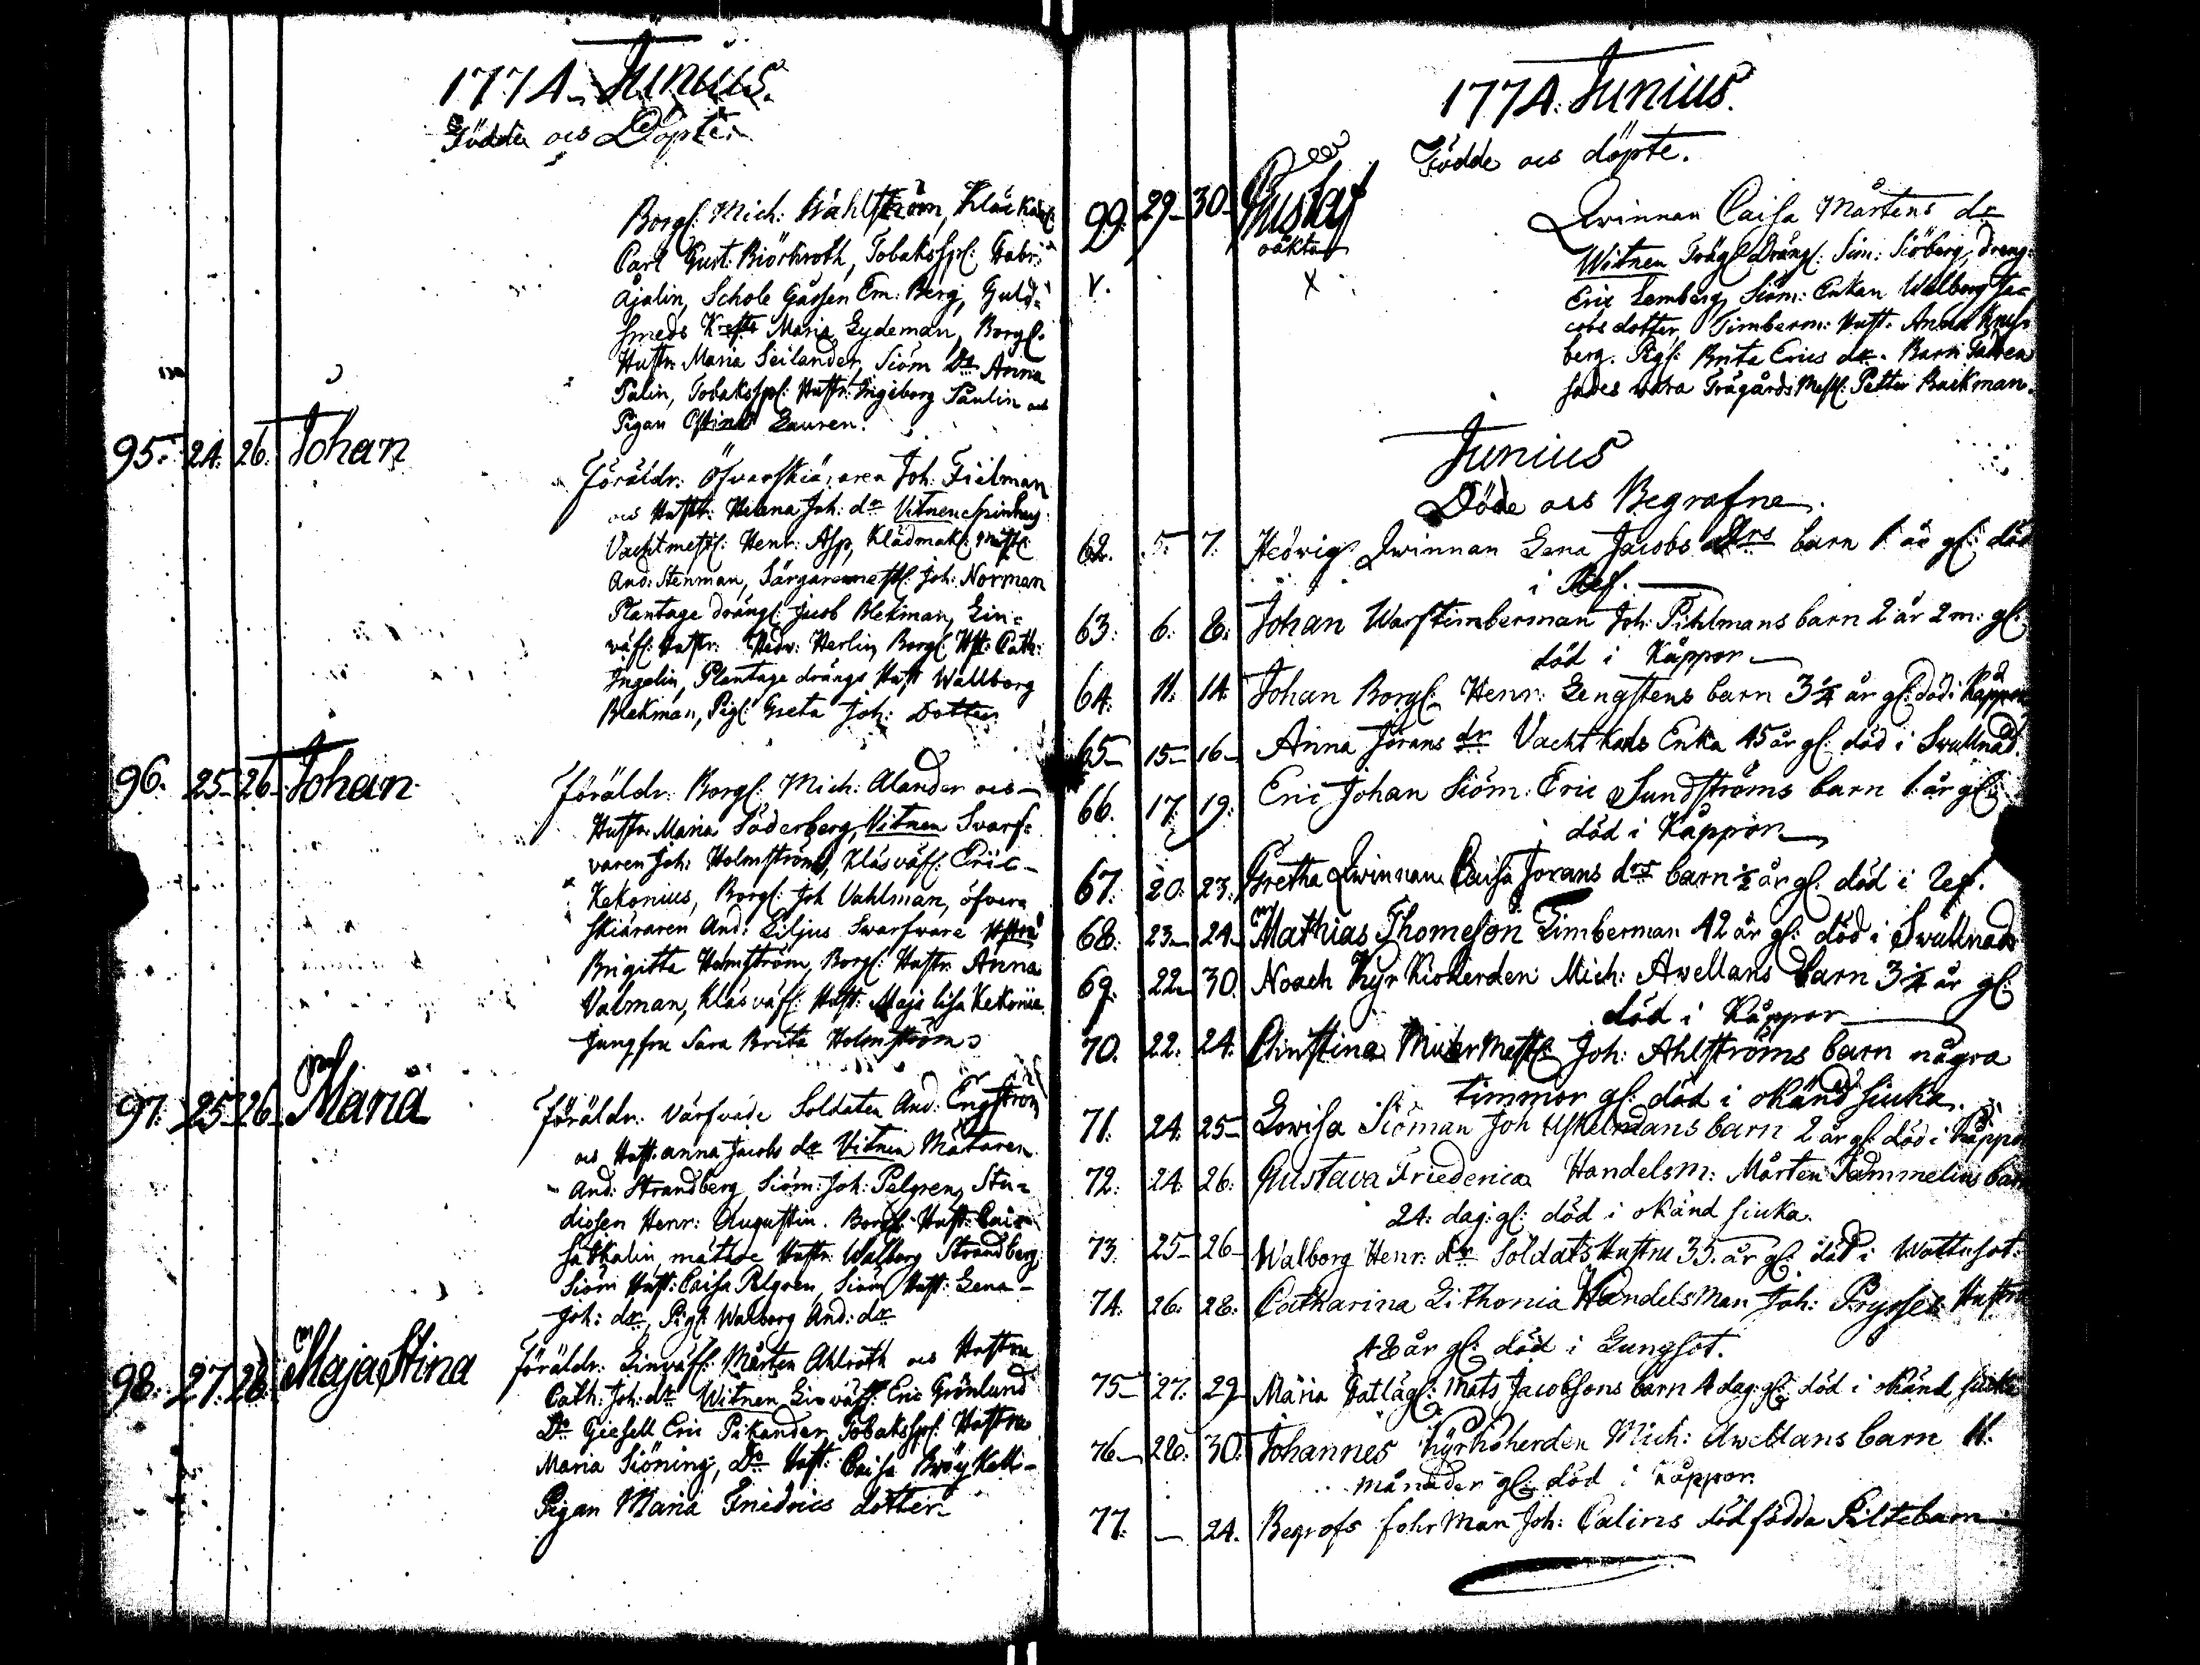 1774. Junius.
Födde ocs Döpte.
Borgl: Mich: Wahlström,
Carl Gust. Biörkroth, Tobaksspl:
Ajalin, Schole Gåssen Em: Berg, Guld-
smeds Maria Lydeman, Borgl:
Hustr. Maria Seilander, Siöm Dtr Anna
Palin, Tobaksspl: Hustr: Ingeborg Paulin ocs
Pigan Stina Lauren.
95. 24. 26. Johan
Föräldr: Öfverskiäraren Joh: Fielman
ocs Hustr: Helena Joh: dr Vitnen
Vachtmest: Henr: Asp, Klädmak: Mest:
And: Stenman, Färgaremest: Joh: Norman
Plantage drängl: Jacob Blekman, Lin-
väf: Hustr: Hedv: Herlin, Borgl: Hst: Cath:
Ingelin, Plantage drängs Hust Wallborg
Blekman, Pigl: Greta Joh: Dotter
96. 25. 26. Johan
Föräldr: Borgl: Mich: Alander ocs
Hustr. Maria Söderberg, Vitnen Svarf-
varen Joh: Holmström, Kläsväf: Eric
Kekonius, Borgl: Joh Vahlman, öfver
skiäraren And: Liljus Swarfvare Hstru
Brigitta Holmström, Borgl: Hustr Anna
Valman, Kläsväf: Hust: Maja lisa Kekonia
Jungfru Sara Brita Holmström
97. 25 26 Maria
Föräldr: Värfvade Soldaten And: Engström
ocs Hust: anna Jacobs dr Vitnen Mätaren
And: Strandberg, Siöm: Joh: Pelgren, Stu-
diosen Henr: Augustin. Borgl: Hust: Cai-
sa Kalin, mätare Hustr: Walborg Strandberg
Siöm Hust: Caisa Pelgren, Siöm Hust: Lena
Joh: dr, Pigl Walborg And: dr
98. 27. 28. Maja Stina
Föräldr: Linväf: Mårten Ahlroth ocs Hustru
Cath: Joh: dr Witnen Linväf: Eric Grönlund
Do Giesell Eric Pikander, Tobakssp: Hustru
Maria Siöning, Do Hust: Caisa
Pigan Maria Friedrics dotter
1774. Junius.
Födde ocs döpte.
99. 29 30 Gustaf
oäkta
Qwinnan Caisa Mårtens dr
Witnen Trägl: Drängl: Sim: Siöberg, dreng:
Eric Lemberg, Siöm: Enkan Walborg Ja-
cobs dotter, Timberm: Hust: Anna
berg. Pigl: Brita Erics dr. Barn Fadren
sades vara Trägårds Mest: Petter Backman.
Junius
Döde ocs Begrafne.
62. 5. 7. Hedvig Qwinnan Lena Jacobs Drs barn 1 år gl: död
i Ref.
63. 6. 8. Johan Warfstimberman Joh: Pihlmans barn 2 år 2 m: gl:
död i Kåppor
64. 11. 14. Johan Borgl: Henr: Lengstens barn 3 1/4 år gl: död i Kåppor
65 15 16 Anna Jörans dr Vacht Karls Enka 45 år gl: död i Svullnad.
66. 17. 19. Eric Johan Siöm: Eric Sundströms barn 1 år gl:
död i Kåppor
67. 20. 23. Gretha Qwinnan Caisa Jorans drs barn 1/2 år gl: död i Ref.
68. 23 24 Mathias Thomeson Timberman 42 år gl: död i Svullnad
69. 22 30. Noach Kyrkioherden Mich: Avellans barn 3 1/4 år gl:
död i Kåppor
70. 22. 24. Christina Murmest: Joh: Ahlströms barn några
timmor gl: död i okänd siuka.
71. 24. 25 Lovisa Siöman Joh Uskelmans barn 2 år gl: död i Kåppor
72. 24. 26. Gustava Friederica Handelsm: Mårten Tammelins barn
24. dag: gl: död i okänd siuka.
73. 25 26 Walborg Henr: dr Soldats Hustru 35. år gl: död i Wattusot:
74. 26. 28. Catharina Lithonia Handelsman Joh: Pryssets Hustru
48 år gl: död i Lungsot.
75 27. 29 Maria Batlägl: Mats Jacobsons barn 4 dag: gl: död i okänd siuka
76 28. 30. Johannes Kyrkoherden Mich: Avellans barn 11.
månader gl: död i Kåppor.
77. — 24. Begrofs fohrman Joh: Calins död födda Piltebarn